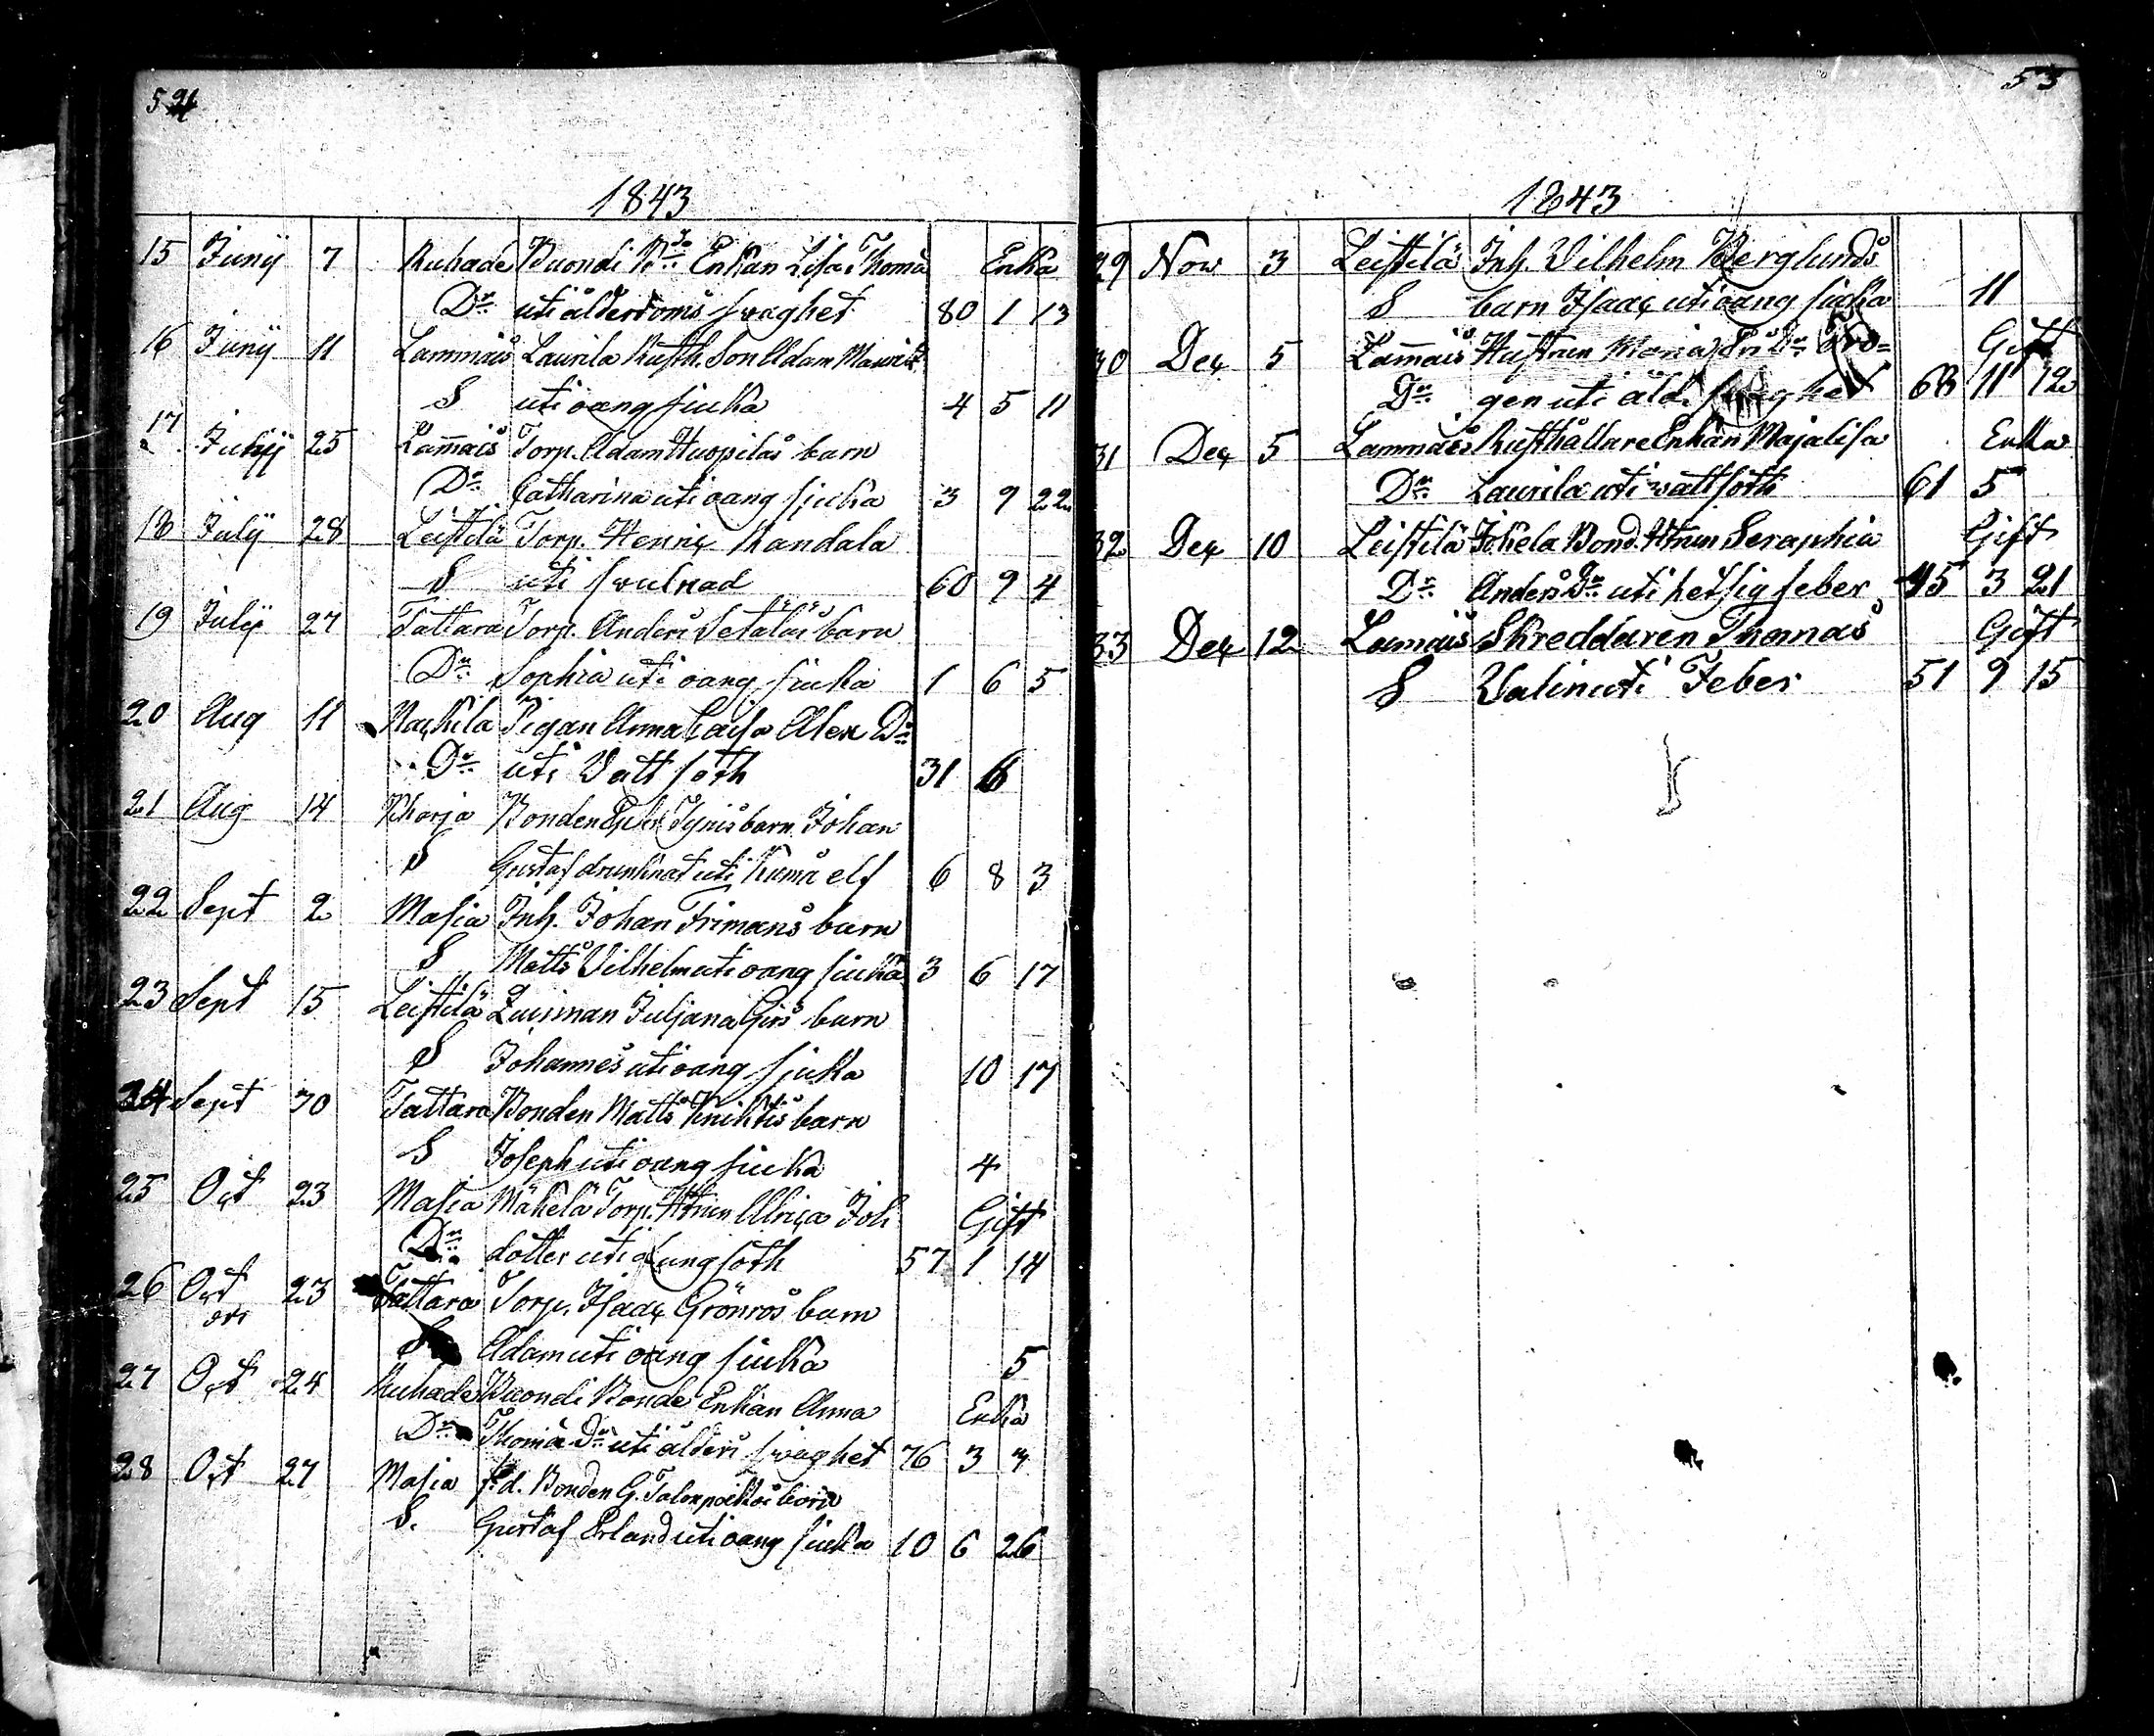 52
1843
15 Junij 7 Ruhade Buondi Bde Enkan Lisa Thomæ Enka
Dr uti ålderdoms swaghet 80 1 13
16 Junij 11 Lammais Laurila Rusth. Son Adam Mauritz
S uti oang siuka 4 5 11
17 Julij 25 Lam̄ais Torp. Adam Huopilas barn
Dr Catharina uti oang sjuka 3 9 22
18 Julij 28 Leistilä Torp. Henric Kandala
S uti swulnad 60 9 4
19 Julij 27 Tattara Torp. Anders Setäläs barn
Dr Sophia uti oang siuka 1 6 5
20 Aug 11 Nackila Pigan Anna Caisa Alex Dr
Dr uti Vatt soth 31 6
21 Aug 14 Wharja Bonden Tynis barn Johan
S Gustaf drunknat uti Kumå elf 6 8 3
22 Sept 2 Masia Inh. Johan Frimans barn
S Matts Vilhelm uti oang siuka 3 6 17
23 Sept 15 Leistilä Quinnan Juljana Girs barn
S Johannes uti oang sjuka 10 17
24 Sept 30 Tattara Bonden Matts Knihtis barn
S Joseph uti oang siuka 4
25 Oct 23 Masia Mäkelä Torp. Htrun Ulrica Joh Gift
Dr dotter uti Lungsoth 57 1 14
26 Oct 23 Tattara Torp. Isaac Grönros barn
S Adam uti oang siuka 5
27 Oct 24 Ruhade Buondi Bonde Enkan Anna Enka
Dr Thomæ Dr uti ålders swaghet 76 3 3
28 Oct 27 Masia f.d. Bonden G. Talonpoikas barn
S. Gustaf Erland uti oang siuka 10 6 26
53
1843
29 Nov 3 Leistilä Inh. Vilhelm Berglunds
S barn Isaac uti oang siuka 11
30 Dec 5 Lam̄ais Hustrun Maria Gift
Dr gen uti åld. swaghet 68 11 12
31 Dec 5 Lammais Rusthållare Enkan Majalisa Enka
Dr Laurila uti wattsoth 61 5
32 Dec 10 Leistilä Jokela Bond. Htrun Seraphia Gift
Dr Anders Dr uti hetsig feber 45 3 21
33 Dec 12 Lamais Skreddaren Thomas Gift
S Valin uti Feber 51 9 15